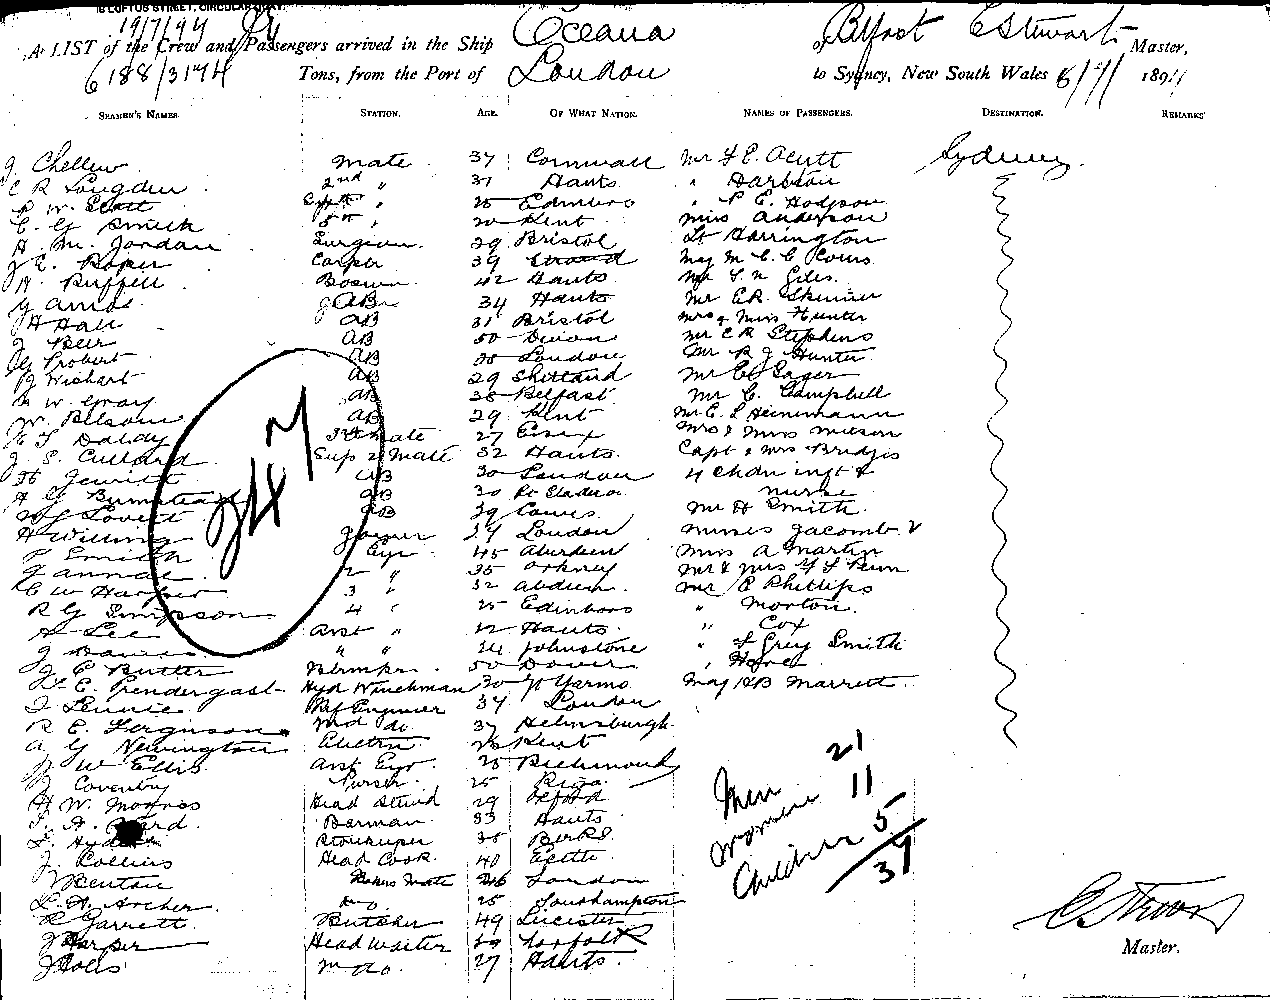 16 LOFTUS STREET, CIRCULAR QUAY.
19/7/94
A LIST of the Crew and Passengers arrived in the Ship Oceana of Belfast C Stewart Master,
6188/3174 Tons, from the Port of London to Sydney, New South Wales 6/7/ 189
SEAMEN'S NAMES. STATION. AGE. OF WHAT NATION. NAMES OF PASSENGERS. DESTINATION. REMARKS
J. Chellew mate 37 Cornwall Mr F. E. Acutt Sydney
C R Longden 2nd " 31 Hants "
R W. Scott " 25 Edinboro " E. Hodgson
C. G Smith 5th " 20 Kent Miss Anderson
H. M. Jordan Surgeon 29 Bristol Lt Harrington
J E. Roper Carptr 39 Strood Maj M. C. C
W. Ruffell Boswn 42 Hants Mr Giles.
G Amos AB 34 Hants Mr E.R. Skinner
H Hall AB 31 Bristol Mrs & Miss Hunter
J Beer AB 50 Devon Mr C R Stephens
G Probert AB London Mr R J Hunter
J Wishart AB 29 Shetland Mr Sager
W. Gray AB 36 Belfast Mr C. Campbell
W. Belsom AB 29 Kent Mr E. L Heinemann
Dalby 3rd mate 27 Essex Mrs & Miss
J. E. Cullard Sup 2 Mate 32 Hants Capt & Mrs Bridges
H Jewitt AB 30 London 4 Chdn inft &
H G Bumstead AB 30 nurse
Lovett AB 39 Cowes. Mr H Smith
H Willing Joyner London Misses Jacomb 2
Smith Eyr 45 Aberdeen Miss A Martin
J Annal 2 " 35 Orkney Mr & Mrs
C W Harper 3 " 32 Abdeen. Mr E Phillips
R G Simpson 4 " 25 Edinboro " Morton.
Lee Asst " Hants. " Cox
J " " Johnstone " Grey Smith
J E Butter 50 Dover "
E. Prendergast Hyd Winchman 30 Gt Yarmo Maj HB Marrett
J Rennie Ref Engineer 37 London
R E. Ferguson 2nd do 37 Helensburgh
A G Newington Electrn 26 Kent
J W Ellis Asst Eyr 25 Richmond
J Coventry Purser. 25
H W. Head Stewd 29 Oxford
A. Ward Barman 33 Hants
Storekeeper 35 Berks.
J. Collins Head Cook 40
Benton Bakers Mate 26 London
L. A. Archer do 25 Southampton
R Garrett Butcher 49 Leicester
J Harper Head Waiter 29 Norfolk
J 2nd do. 27 Hants.
247
Men 21
Women 11
Children 5
37
C Stewart
Master.